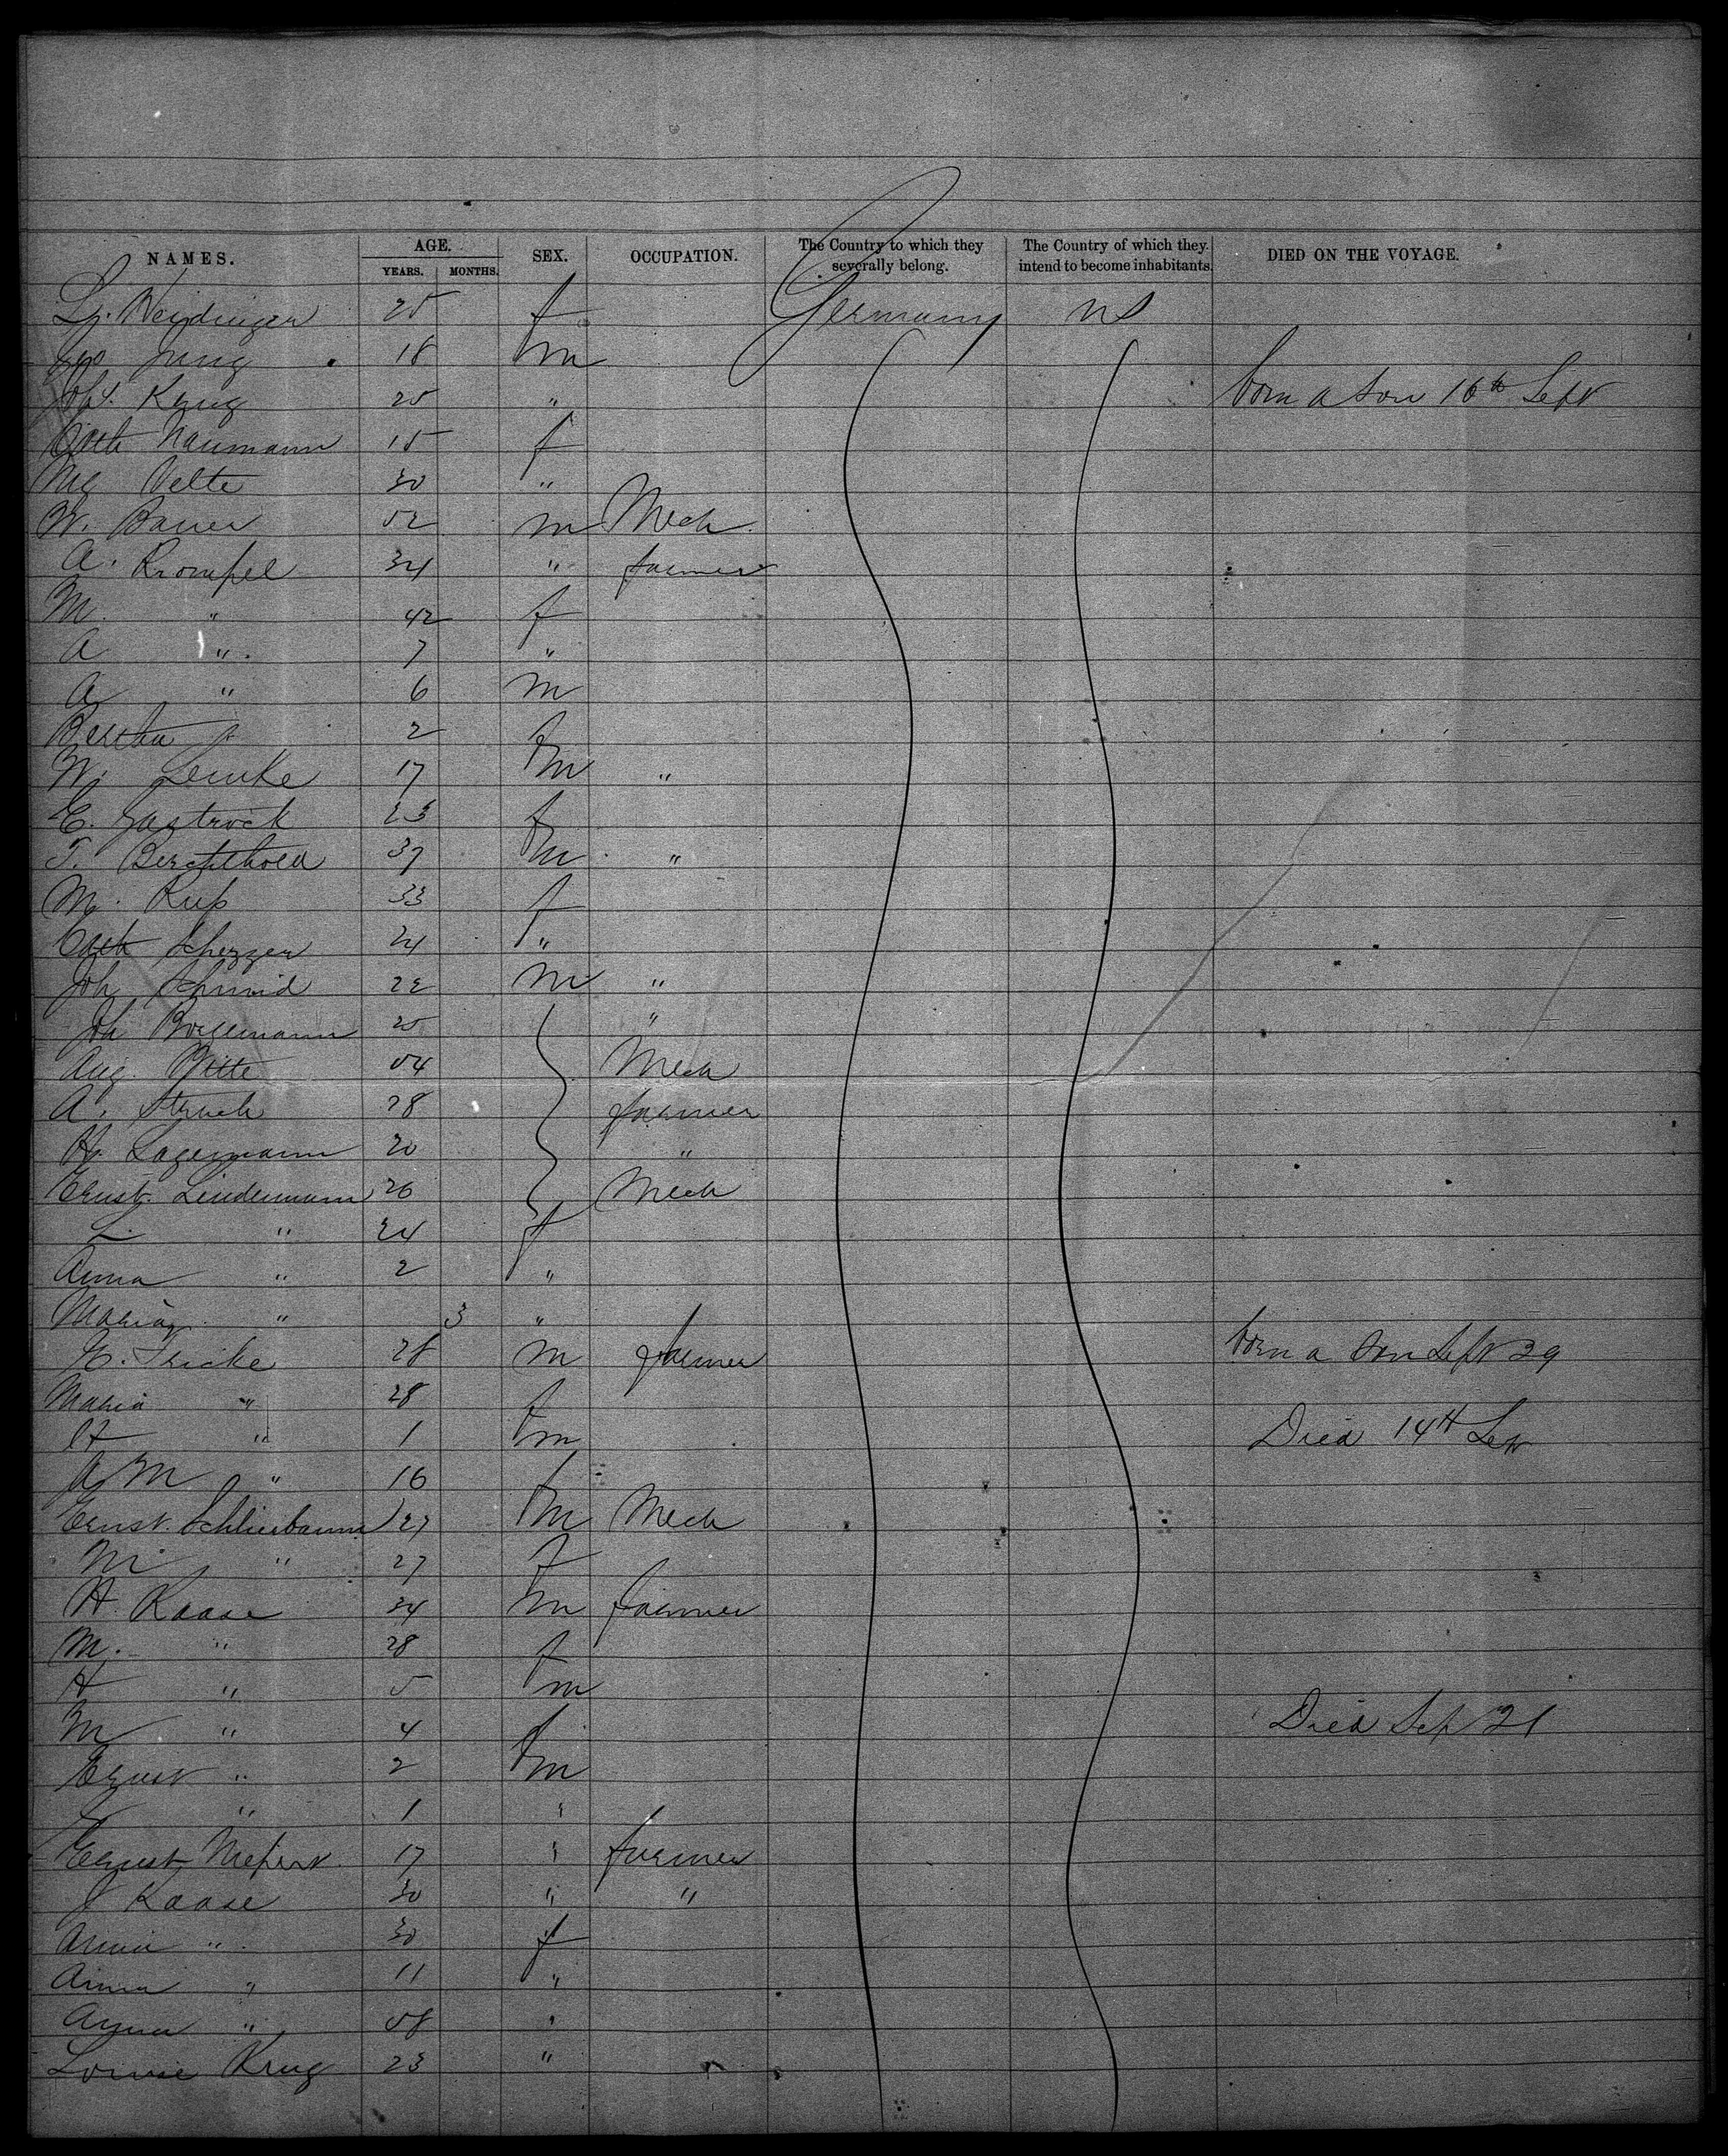 NAMES. AGE. YEARS. MONTHS. SEX. OCCUPATION. The Country to which they severally belong. The Country of which they intend to become inhabitants. DIED ON THE VOYAGE.
Weydinger 25 f Germany US
Jung 18 m
Krug 25 " born a son 16th Sept
Cath Naumann 15 f
Mg Velte 30 "
W. Bauer 52 m Mech
A. Krompel 34 " farmer
M. " 42 f
A " 7 "
A " 6 m
Bertha " 2 f
W. Lemke 17 m "
E. Gastrock 23 f
T. Berchthold 37 m "
M. Rup 33 f
Cath Scherzer 24 "
Joh Schmid 22 m "
Joh Borgemann 25 "
Aug. Witte 54 Mech
A. Struck 28 farmer
H. Lagemann 20 "
Ernst Lindemann 26 Mech
L " 24 f
Anna " 2 "
Maria " 3 "
E. Fricke 28 m farmer born a son Sept 29
Maria " 28 f
H " 1 m Died 14th Sep
A M " 16 f
Ernst Schlierbaum 27 m Mech
M " 27 f
H. Kaase 34 m farmer
M. " 28 f
H " 5 m
M " 4 f Died Sep 21
Ernst " 2 m
" 1 "
Ernst 17 " farmer
J Kaase 30 " "
Anna " 30 f
Anna " 11 "
Anna " 58 "
Louise Krug 23 "